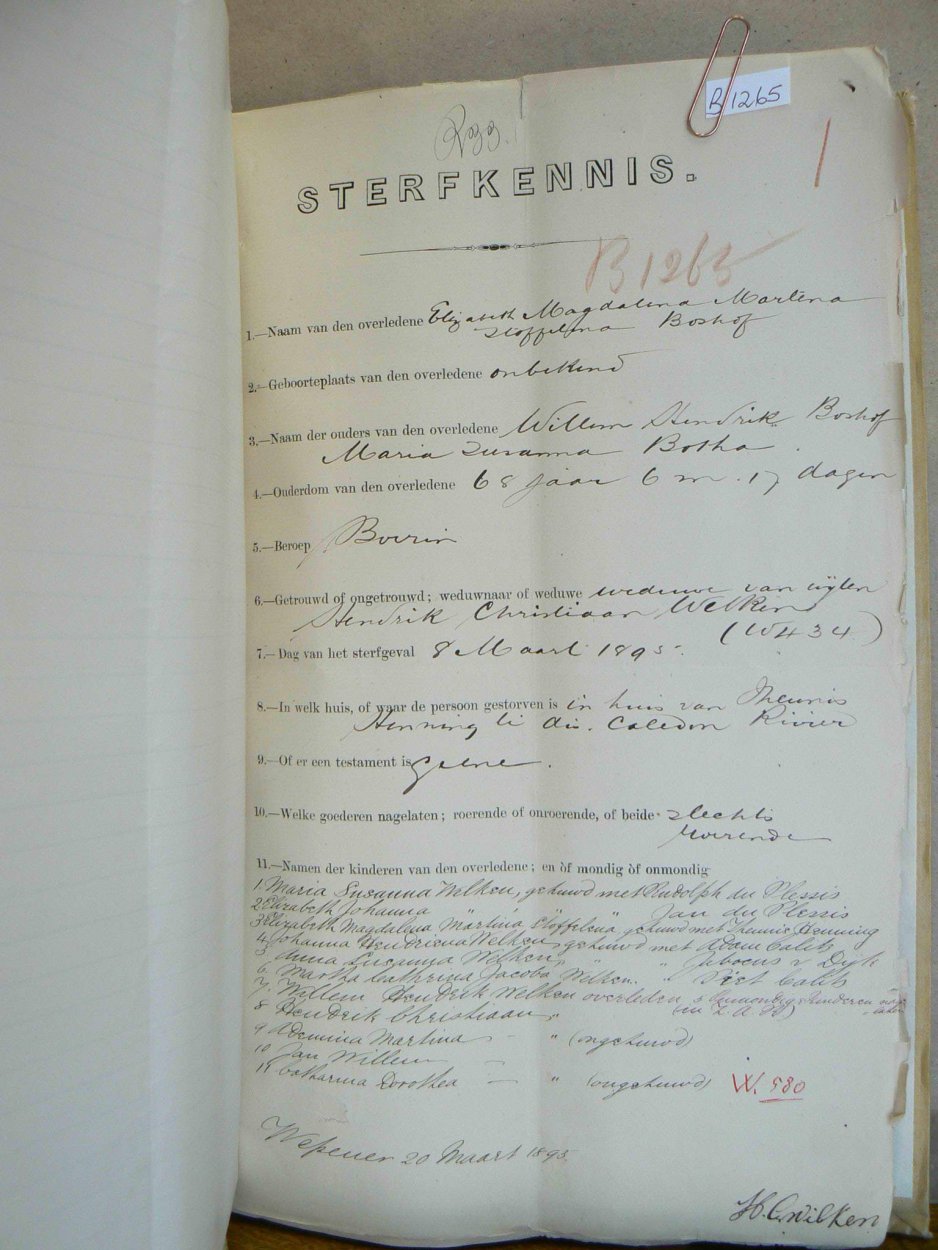 B 1265
STERFKENNIS.
B1263
1.—Naam van den overledene Elizabeth Magdalena Martina
Stoffelina Boshof
2.—Geboorteplaats van den overledene onbekend
3.—Naam der ouders van den overledene Willem Hendrik Boshof
Maria Susanna Botha.
4.—Ouderdom van den overledene 68 jaar 6 m. 17 dagen
5.—Beroep Boerin
6.—Getrouwd of ongetrouwd; weduwnaar of weduwe weduwe van wijlen
Hendrik Christiaan Welken
(W434)
7.—Dag van het sterfgeval 8 Maart 1895.
8.—In welk huis, of waar de persoon gestorven is in huis van Theunis
Henning te dis. Caledon Rivier
9.—Of er een testament is Geene.
10.—Welke goederen nagelaten; roerende of onroerende, of beide slechts
roerende
11.—Namen der kinderen van den overledene; en òf mondig òf onmondig
1. Maria Susanna Wilken, gehuwd met Rudolph du Plessis
2 Elizabeth Johanna " " " Jan du Plessis
3 Elizabeth Magdalena Martina Stoffelina gehuwd met Theunis Henning
4 Johanna Hendriena Welken gehuwd met Adam Calitz
5 Anna Susanna Welken, " " Jacobus v Dijk
6. Martha Cathrina Jacoba Welken. " Piet Calitz
7. Willem Hendrik Welken overleden, 3 onmondige kinderen
8 Hendrik Christiaan " (in Z.A.R)
9 Martina — " (ongehuwd)
10 Jan Willem —
11 Catharina Dorothea — " (ongehuwd) W. 580
Wepener 20 Maart 1895.
H. C. Wilken